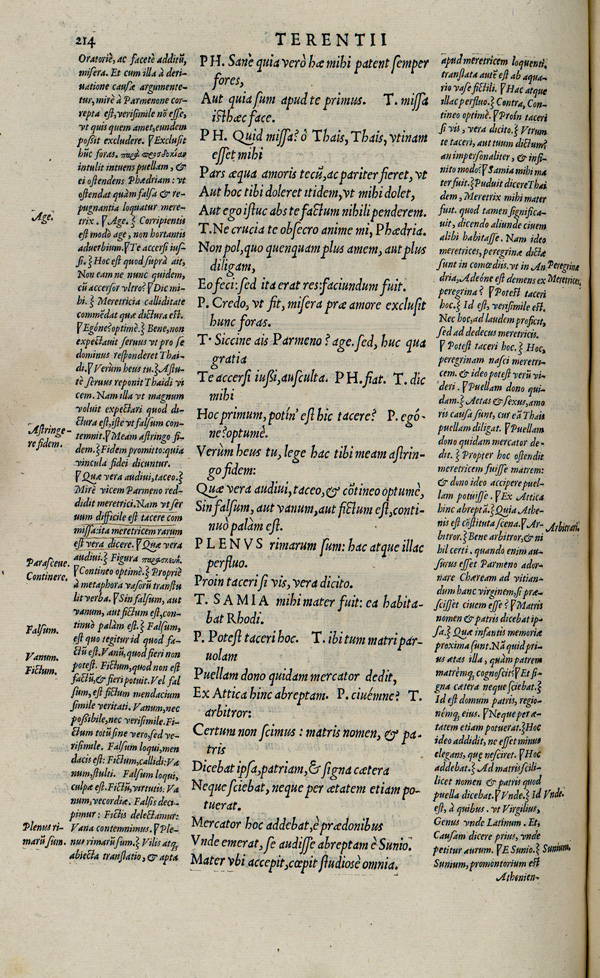 214
TERENTII
Oratoriè, ac facetè additũ,
misera. Et cum illa à deri-
uatione causæ argumente-
tur, mirè à Parmenone cor-
repta est, verisimile nõ esse,
vt quis quem amet, eundem
possit excludere. ⁋Exclusit
hũc foras.
intulit intuens puellam, &
ei ostendens Phædriam: vt
ostendat quàm falsa & re-
pugnantia loquatur mere-
trix. ⁋Age.} Corripientis
est modo age, non hortantis
aduerbium. ⁋Te accersi ius-
si.} Hoc est quod suprà ait,
Non tam ne nunc quidem,
cũ accersor vltro? ⁋Dic mi-
bi.} Meretricia calliditate
commẽdat quæ dictura est.
⁋Egóne? optimè.} Bene, non
expectauit seruus vt pro se
dominus responderet Thai-
di. ⁋Verùm heus tu.} Astu-
tè seruus reponit Thaidi vi
cem. Nam illa vt magnum
voluit expectari quod di-
ctura est, iste vt falsum con-
temnit. ⁋Meam astringo fi-
dem.} Fidem promitto: quia
vincula fidei dicuntur.
⁋Quæ vera audiui, taceo.}
Mirè vicem Parmeno red-
didit meretrici. Nam vt ser
uum difficile est tacere com
missa: ita meretricem rarum
est vera dicere. ⁋Quæ vera
audiui.} Figura
⁋Contineo optimè.} Propriè
à metaphora vasorũ transtu
lit verba. ⁋Sin falsum, aut
vanum, aut fictum est, con-
tinuò palàm est.} Falsum,
est quo tegitur id quod fa-
ctũ est. Vanũ, quod fieri non
potest. Fictum, quod non est
factũ, & fieri potuit. Vel fal
sum, est fictum mendacium
simile veritati. Vanum, nec
possibile, nec verisimile. Fi-
ctum totũ sine vero, sed ve-
risimile. Falsum loqui, men
dacis est: Fictum, callidi: Va
num, stulti. Falsum loqui,
culpæ est. Fictũ, virtutis. Va
num, vecordiæ. Falsis deci-
pimur: Fictis delectamur:
Vana contemnimus. ⁋Ple-
nus rimarũ sum.} Vilis atq,
abiecta translatio, & apta
Age.
Astringe-
re fidem.
Parasceue.
Continere.
Falsum.
Vanum.
Fictum.
Plenus ri-
marũ sum.
PH. Sanè quia verò hæ mihi patent semper
fores,
Aut quia sum apud te primus. T. missa
isthæc face.
PH. Quid missa? ô Thais, Thais, vtinam
esset mihi
Pars æqua amoris tecũ, ac pariter fieret, vt
Aut hoc tibi doleret itidem, vt mihi dolet,
Aut ego istuc abs te factum nihili penderem.
T. Ne crucia te obsecro anime mi, Phædria.
Non pol, quo quenquam plus amem, aut plus
diligam,
Eo feci: sed ita erat res: faciundum fuit.
P. Credo, vt fit, misera præ amore exclusit
hunc foras.
T. Siccine ais Parmeno? age. sed, huc qua
gratia
Te accersi iussi, ausculta. PH. fiat. T. dic
mihi
Hoc primum, potin' est hic tacere? P. egó-
ne? optumè.
Verùm heus tu, lege hac tibi meam astrin-
go fidem:
Quæ vera audiui, taceo, & cõtineo optumè,
Sin falsum, aut vanum, aut fictum est, conti-
nuò palàm est.
PLENVS rimarum sum: hac atque illac
perfluo.
Proin taceri si vis, vera dicito.
T. SAMIA mihi mater fuit: ea habita-
bat Rhodi.
P. Potest taceri hoc. T. ibi tum matri par-
uolam
Puellam dono quidam mercator dedit,
Ex Attica hinc abreptam. P. ciuémne? T.
arbitror:
Certum non scimus: matris nomen, & pa-
tris
Dicebat ipsa, patriam, & signa cætera
Neque sciebat, neque per ætatem etiam po-
tuerat.
Mercator hoc addebat, è prædonibus
Vnde emerat, se audisse abreptam è Sunio.
Mater vbi accepit, cœpit studiosè omnia.
apud meretricem loquenti,
translata autẽ est ab aqua-
rio vase fictili. ⁋Hac atque
illac perfluo.} Contra, Con-
tineo optimè. ⁋Proin taceri
si vis, vera dicito.} Vtrum
te taceri, aut tuum dictum?
an impersonaliter, & infi-
nito modo? ⁋Samia mihi ma
ter fuit.} Puduit dicere Thai
dem, Meretrix mihi mater
fuit. quod tamen significa-
uit, dicendo aliunde ciuem
alibi habitasse. Nam ideo
meretrices, peregrinæ dictæ
sunt in comœdiis. vt in An
dria, Adeóne est demens ex
peregrina? ⁋Potest taceri
hoc.} Id est, verisimile est.
Nec hoc, ad laudem proficit,
sed ad dedecus meretricis.
⁋Potest taceri hoc.} Hoc,
peregrinam nasci meretri-
cem. & ideo potest verũ vi-
deri. ⁋Puellam dono qui-
dam.} Aetas & sexus, amo
ris causa sunt, cur eã Thais
puellam diligat. ⁋Puellam
dono quidam mercator de-
dit.} Propter hoc ostendit
meretricem fuisse matrem:
& dono ideo accipere puel-
lam potuisse. ⁋Ex Attica
hinc abreptã.} Quia Athe-
nis est cõstituta scena. ⁋Ar-
bitror.} Bene arbitror, & ni
hil certi. quando enim au-
surus esset Parmeno ador-
nare Chæream ad vitian-
dum hanc virginem, si præ-
scisset ciuem esse? ⁋Matris
nomen & patris dicebat ip-
sa.} Quæ infantis memoriæ
proxima sunt. Nã quid priùs
ætas illa, quàm patrem
matrémq, cognoscit? ⁋Et si-
gna cætera neque sciebat.}
Id est domum patris, regio-
némq, eius. ⁋Neque per æ-
tatem etiam potuerat.} Hoc
ideo addidit, ne esset minus
elegans, quę nesciret. ⁋Hoc
addebat.} Ad matris scili-
licet nomen & patris quod
puella dicebat. ⁋Vnde.} Id
est, à quibus. vt Virgilius,
Genus vnde Latinum. Et,
Causam dicere prius, vnde
petitur aurum. ⁋E Sunio.}
Sunium, promontorium est
Athenien-
Peregrinæ
Meretrices.
Arbitrari.
Vnde.
Sunium.